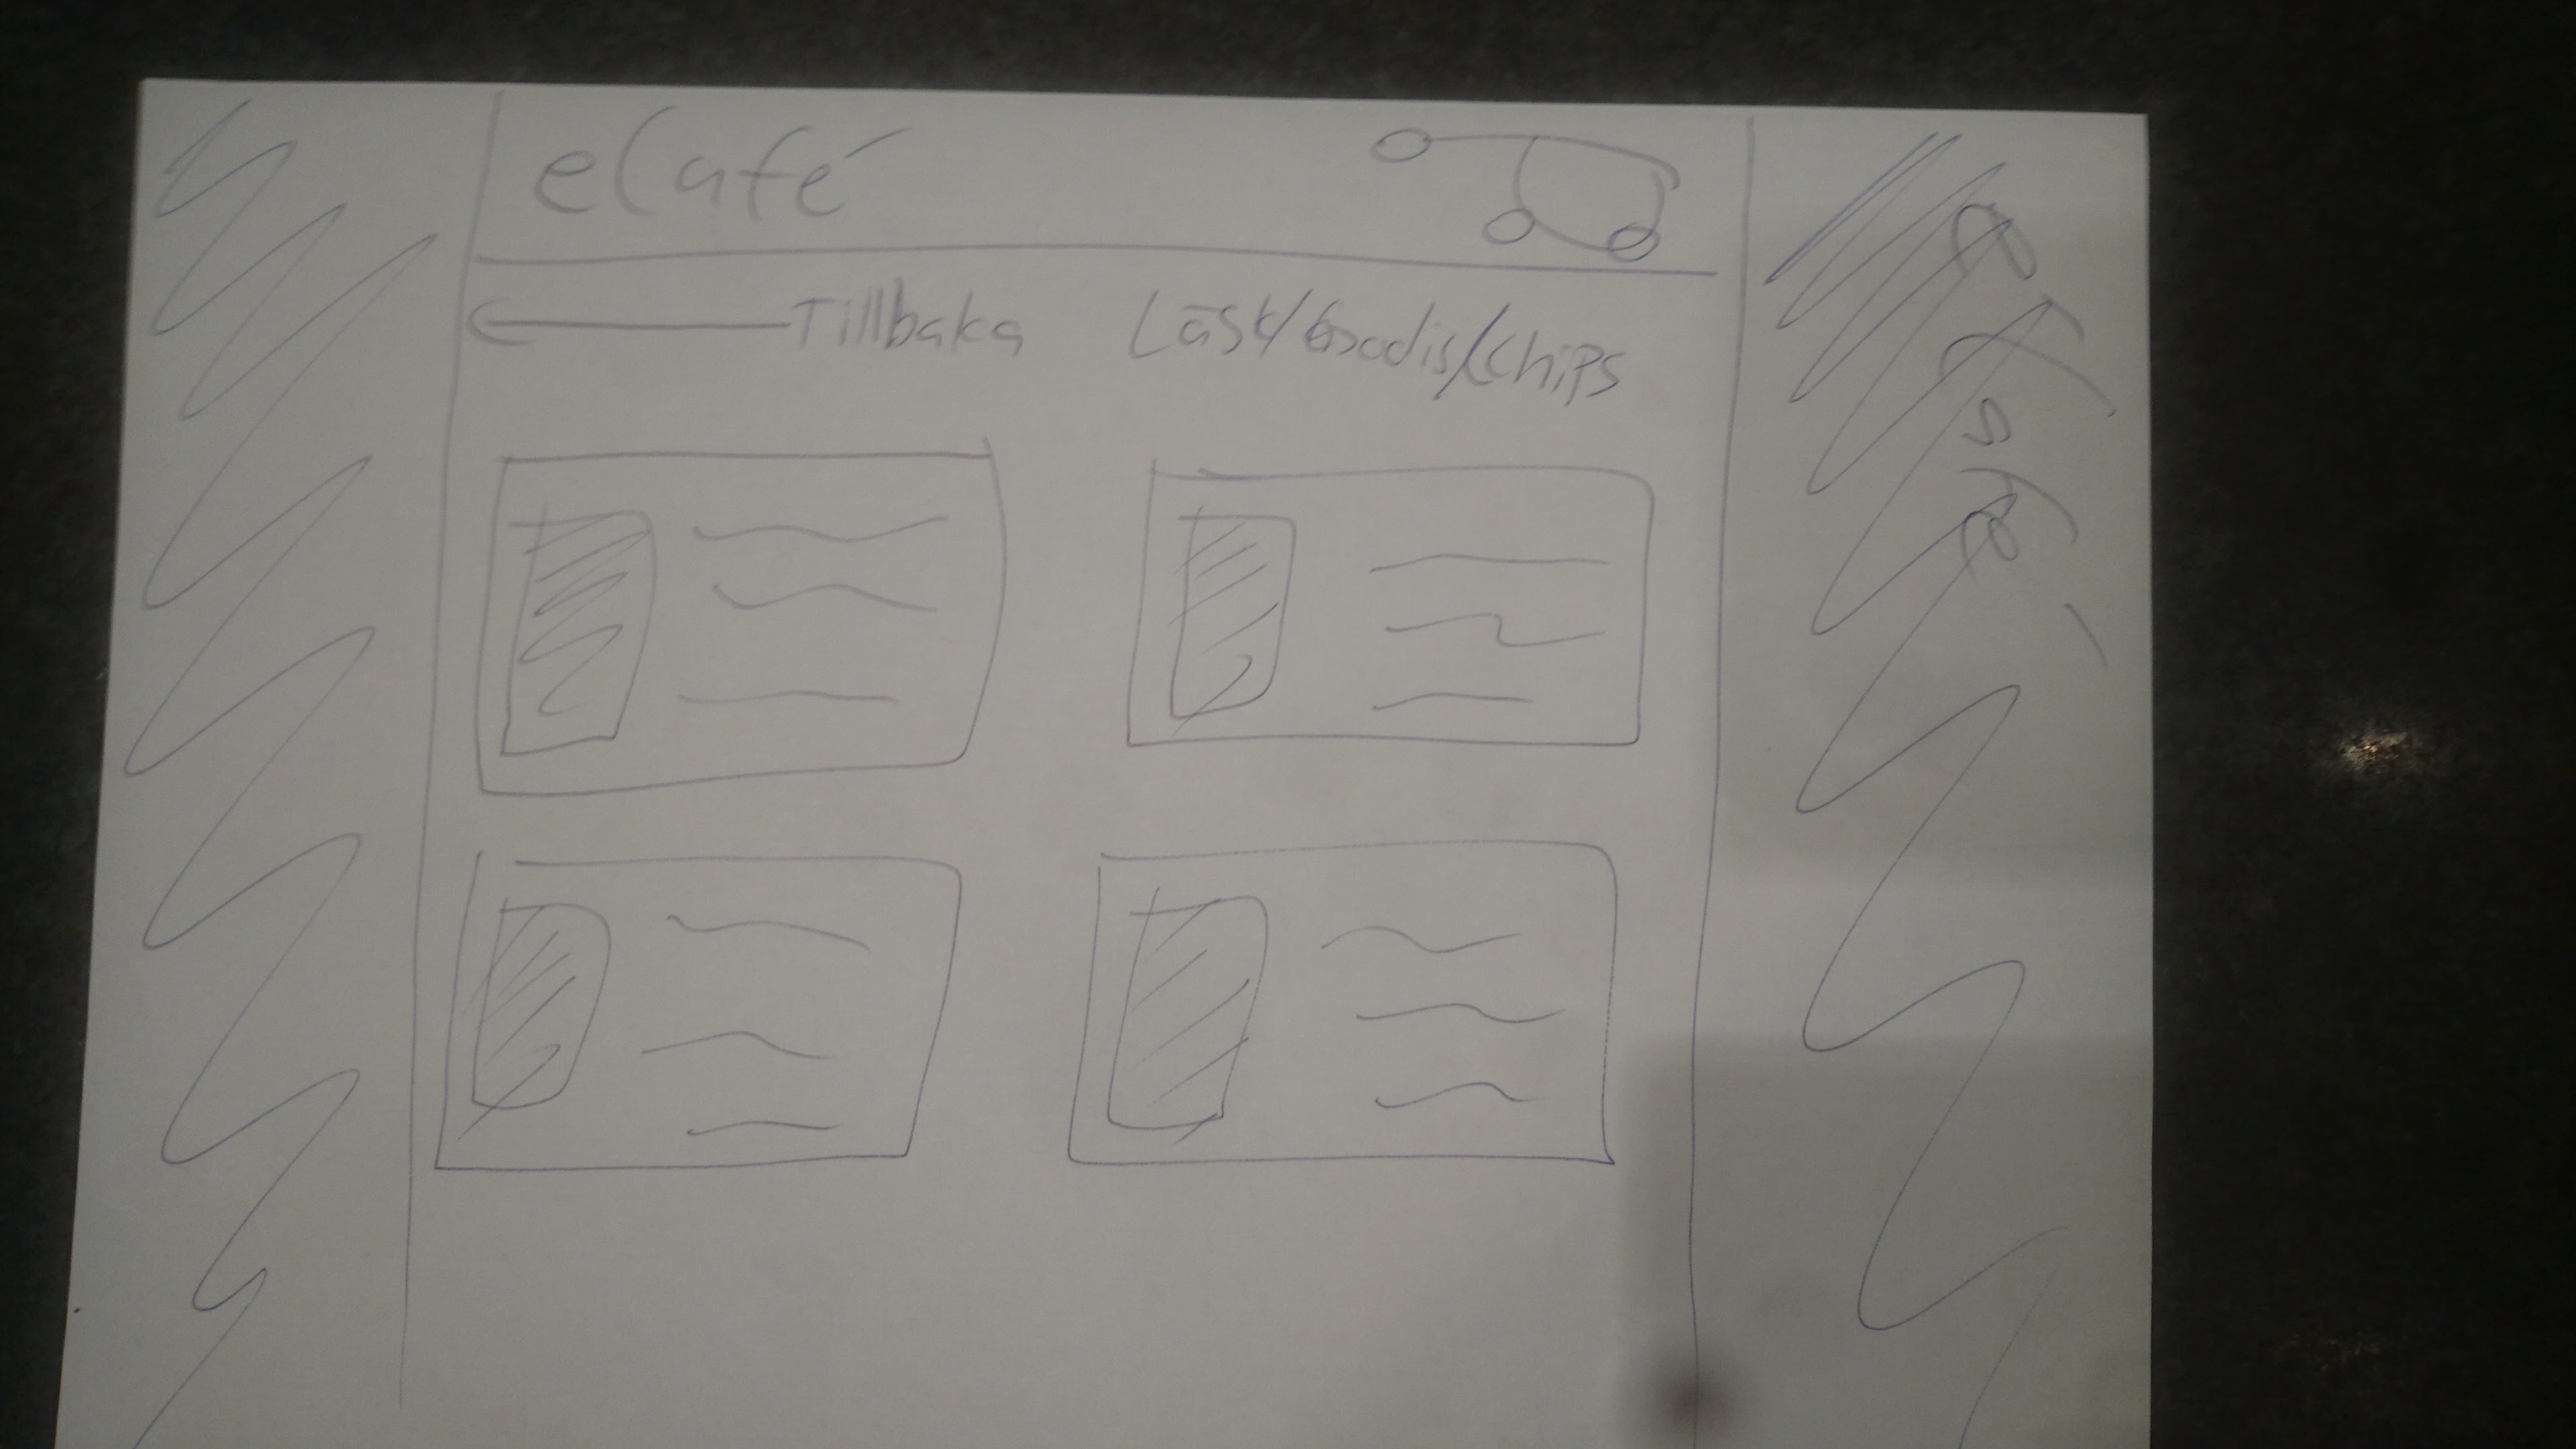 eCafé
Tillbaka Läsk/Godis/Chips